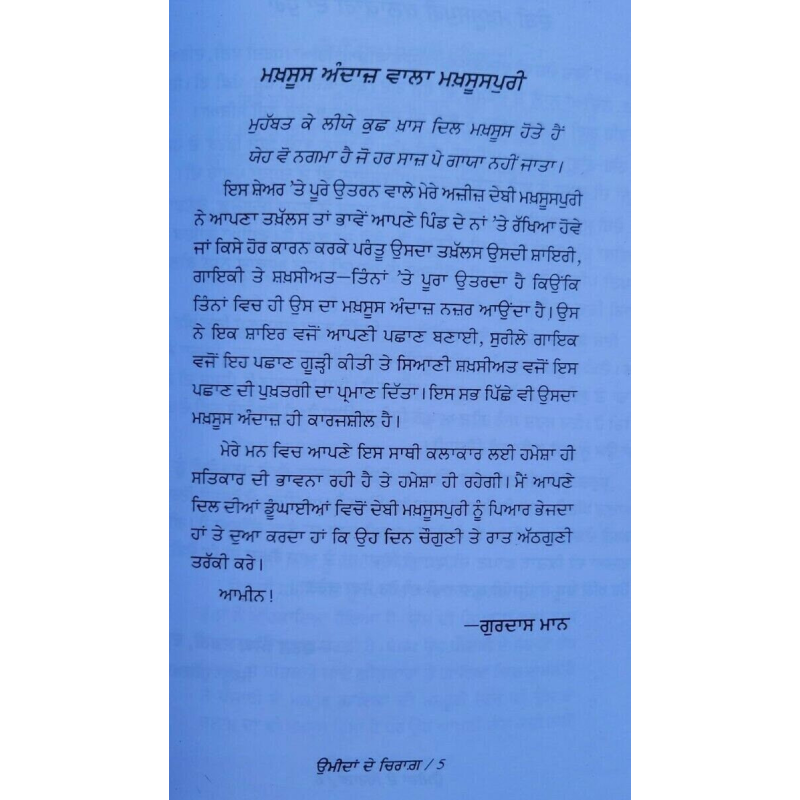 ਮਖ਼ਸੂਸ ਅੰਦਾਜ਼ ਵਾਲਾ ਮਖ਼ਸੂਸਪੁਰੀ
ਮੁਹੱਬਤ ਕੇ ਲੀਯੇ ਕੁਛ ਖ਼ਾਸ ਦਿਲ ਮਖ਼ਸੂਸ ਹੋਤੇ ਹੈਂ
ਯੇਹ ਵੋ ਨਗਮਾ ਹੈ ਜੋ ਹਰ ਸਾਜ਼ ਪੇ ਗਾਯਾ ਨਹੀਂ ਜਾਤਾ।
ਇਸ ਸ਼ੇਅਰ ’ਤੇ ਪੂਰੇ ਉਤਰਨ ਵਾਲੇ ਮੇਰੇ ਅਜ਼ੀਜ਼ ਦੇਬੀ ਮਖ਼ਸੂਸਪੁਰੀ
ਨੇ ਆਪਣਾ ਤਖ਼ੱਲਸ ਤਾਂ ਭਾਵੇਂ ਆਪਣੇ ਪਿੰਡ ਦੇ ਨਾਂ ’ਤੇ ਰੱਖਿਆ ਹੋਵੇ
ਜਾਂ ਕਿਸੇ ਹੋਰ ਕਾਰਨ ਕਰਕੇ ਪਰੰਤੂ ਉਸਦਾ ਤਖ਼ੱਲਸ ਉਸਦੀ ਸ਼ਾਇਰੀ,
ਗਾਇਕੀ ਤੇ ਸ਼ਖ਼ਸੀਅਤ—ਤਿੰਨਾਂ ’ਤੇ ਪੂਰਾ ਉਤਰਦਾ ਹੈ ਕਿਉਂਕਿ
ਤਿੰਨਾਂ ਵਿਚ ਹੀ ਉਸ ਦਾ ਮਖ਼ਸੂਸ ਅੰਦਾਜ਼ ਨਜ਼ਰ ਆਉਂਦਾ ਹੈ। ਉਸ
ਨੇ ਇਕ ਸ਼ਾਇਰ ਵਜੋਂ ਆਪਣੀ ਪਛਾਣ ਬਣਾਈ, ਸੁਰੀਲੇ ਗਾਇਕ
ਵਜੋਂ ਇਹ ਪਛਾਣ ਗੂੜ੍ਹੀ ਕੀਤੀ ਤੇ ਸਿਆਣੀ ਸ਼ਖ਼ਸੀਅਤ ਵਜੋਂ ਇਸ
ਪਛਾਣ ਦੀ ਪੁਖ਼ਤਗੀ ਦਾ ਪ੍ਰਮਾਣ ਦਿੱਤਾ। ਇਸ ਸਭ ਪਿੱਛੇ ਵੀ ਉਸਦਾ
ਮਖ਼ਸੂਸ ਅੰਦਾਜ਼ ਹੀ ਕਾਰਜਸ਼ੀਲ ਹੈ।
ਮੇਰੇ ਮਨ ਵਿਚ ਆਪਣੇ ਇਸ ਸਾਥੀ ਕਲਾਕਾਰ ਲਈ ਹਮੇਸ਼ਾ ਹੀ
ਸਤਿਕਾਰ ਦੀ ਭਾਵਨਾ ਰਹੀ ਹੈ ਤੇ ਹਮੇਸ਼ਾ ਹੀ ਰਹੇਗੀ। ਮੈਂ ਆਪਣੇ
ਦਿਲ ਦੀਆਂ ਡੂੰਘਾਈਆਂ ਵਿਚੋਂ ਦੇਬੀ ਮਖ਼ਸੂਸਪੁਰੀ ਨੂੰ ਪਿਆਰ ਭੇਜਦਾ
ਹਾਂ ਤੇ ਦੁਆ ਕਰਦਾ ਹਾਂ ਕਿ ਉਹ ਦਿਨ ਚੌਗੁਣੀ ਤੇ ਰਾਤ ਅੱਠਗੁਣੀ
ਤਰੱਕੀ ਕਰੇ।
ਆਮੀਨ!
—ਗੁਰਦਾਸ ਮਾਨ
ਉਮੀਦਾਂ ਦੇ ਚਿਰਾਗ਼ / 5